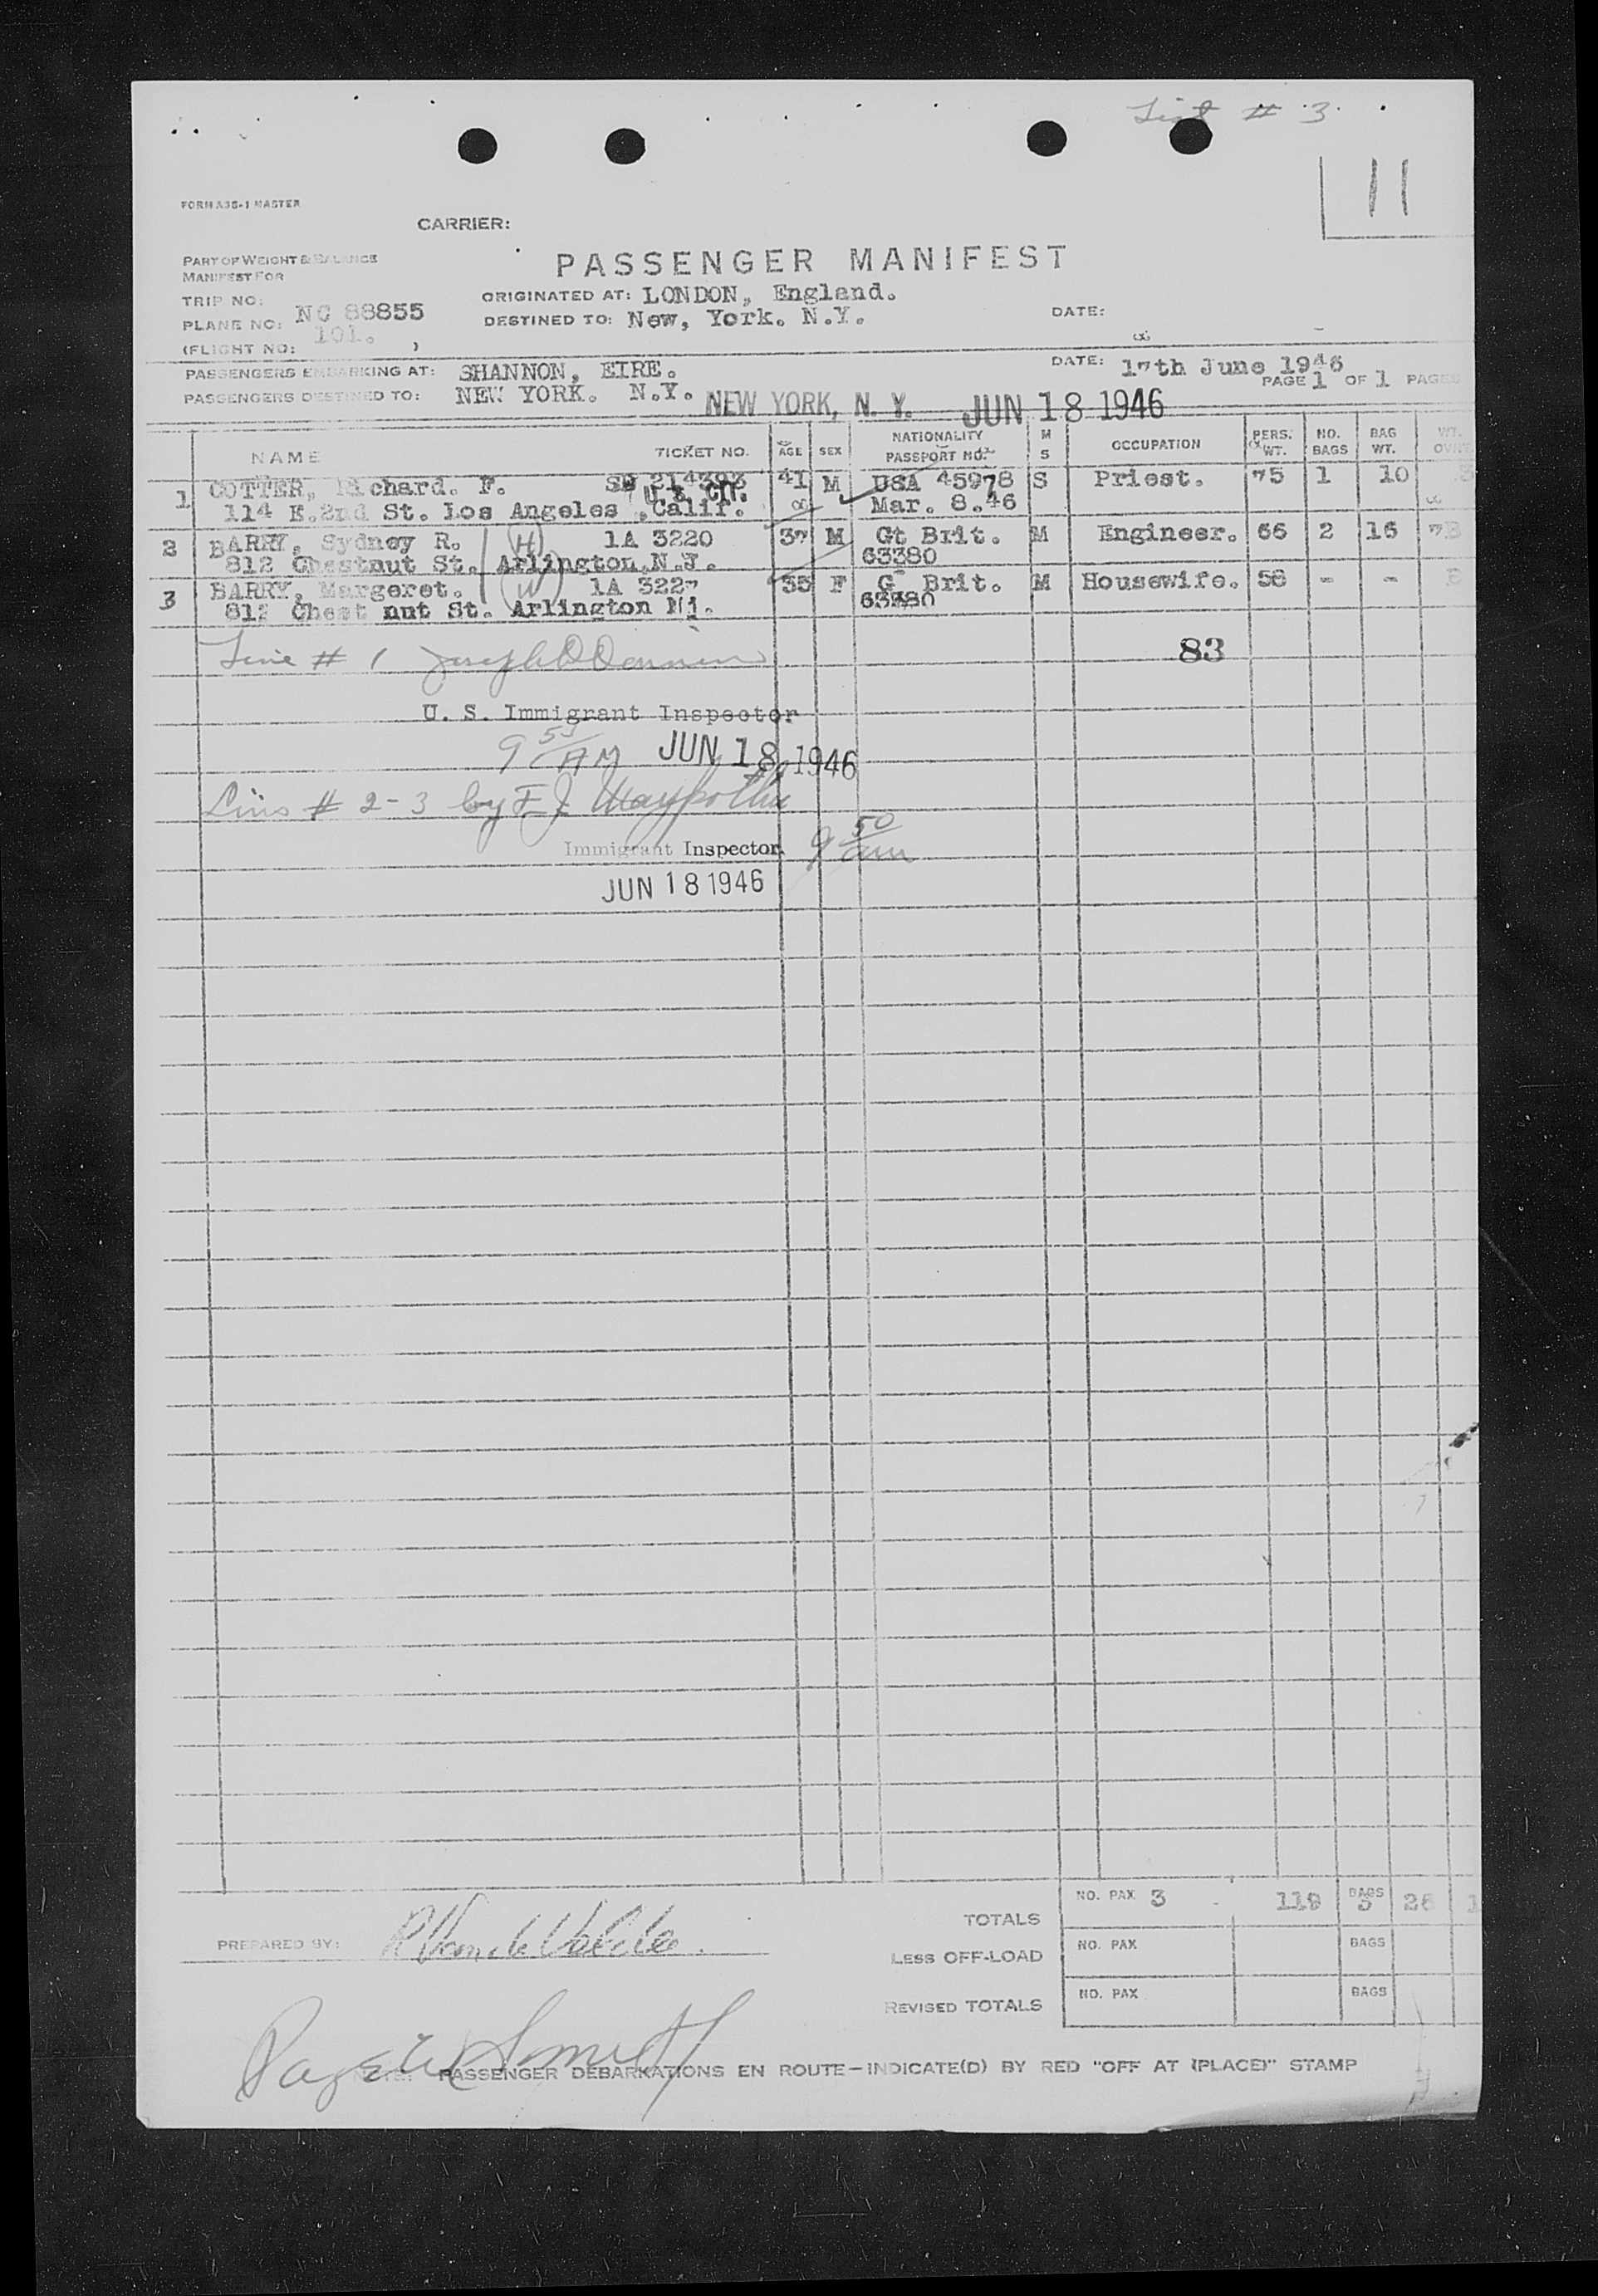 List # 3
11
FORM A3S-1 MASTER
CARRIER:
PART OF WEIGHT & BALANCE
MANIFEST FOR
PASSENGER MANIFEST
TRIP NO:
ORIGINATED AT: LONDON, England.
PLANE NO: NC 88855
DESTINED TO: New, York. N.Y.
DATE:
(FLIGHT NO: 101. )
PASSENGERS EMBARKING AT: SHANNON, EIRE.
DATE: 17th June 1946
PAGE 1 OF 1 PAGES
PASSENGERS DESTINED TO: NEW YORK. N.Y. NEW YORK, N. Y. JUN 18 1946
NAME TICKET NO. AGE SEX NATIONALITY PASSPORT NO. M S OCCUPATION PERS. WT. NO. BAGS BAG WT. WT.
1 COTTER, Richard. F. 214393 41 M USA 45978 S Priest. 75 1 10
U.S. CIT.
114 E.2nd St. Los Angeles ,Calif. Mar. 8.46
2 BARRY, Sydney R. (H) 1A 3220 37 M Gt Brit. M Engineer. 66 2 16
812 Chestnut St. Arlington.N.J. 63380
3 BARRY, Margeret. (W) 1A 3227 35 F G Brit. M Housewife. 58 - -
812 Chest nut St. Arlington Nj. 63380
Line # 1
83
U. S. Immigrant Inspector
9 55 AM JUN 18 1946
Lines # 2-3 by F J
Immigrant Inspector 9 50 am
JUN 18 1946
TOTALS NO. PAX 3 119 BAGS 3 26 1
PREPARED BY:
LESS OFF-LOAD NO. PAX BAGS
REVISED TOTALS NO. PAX BAGS
PASSENGER DEBARKATIONS EN ROUTE—INDICATE(D) BY RED "OFF AT (PLACE)" STAMP